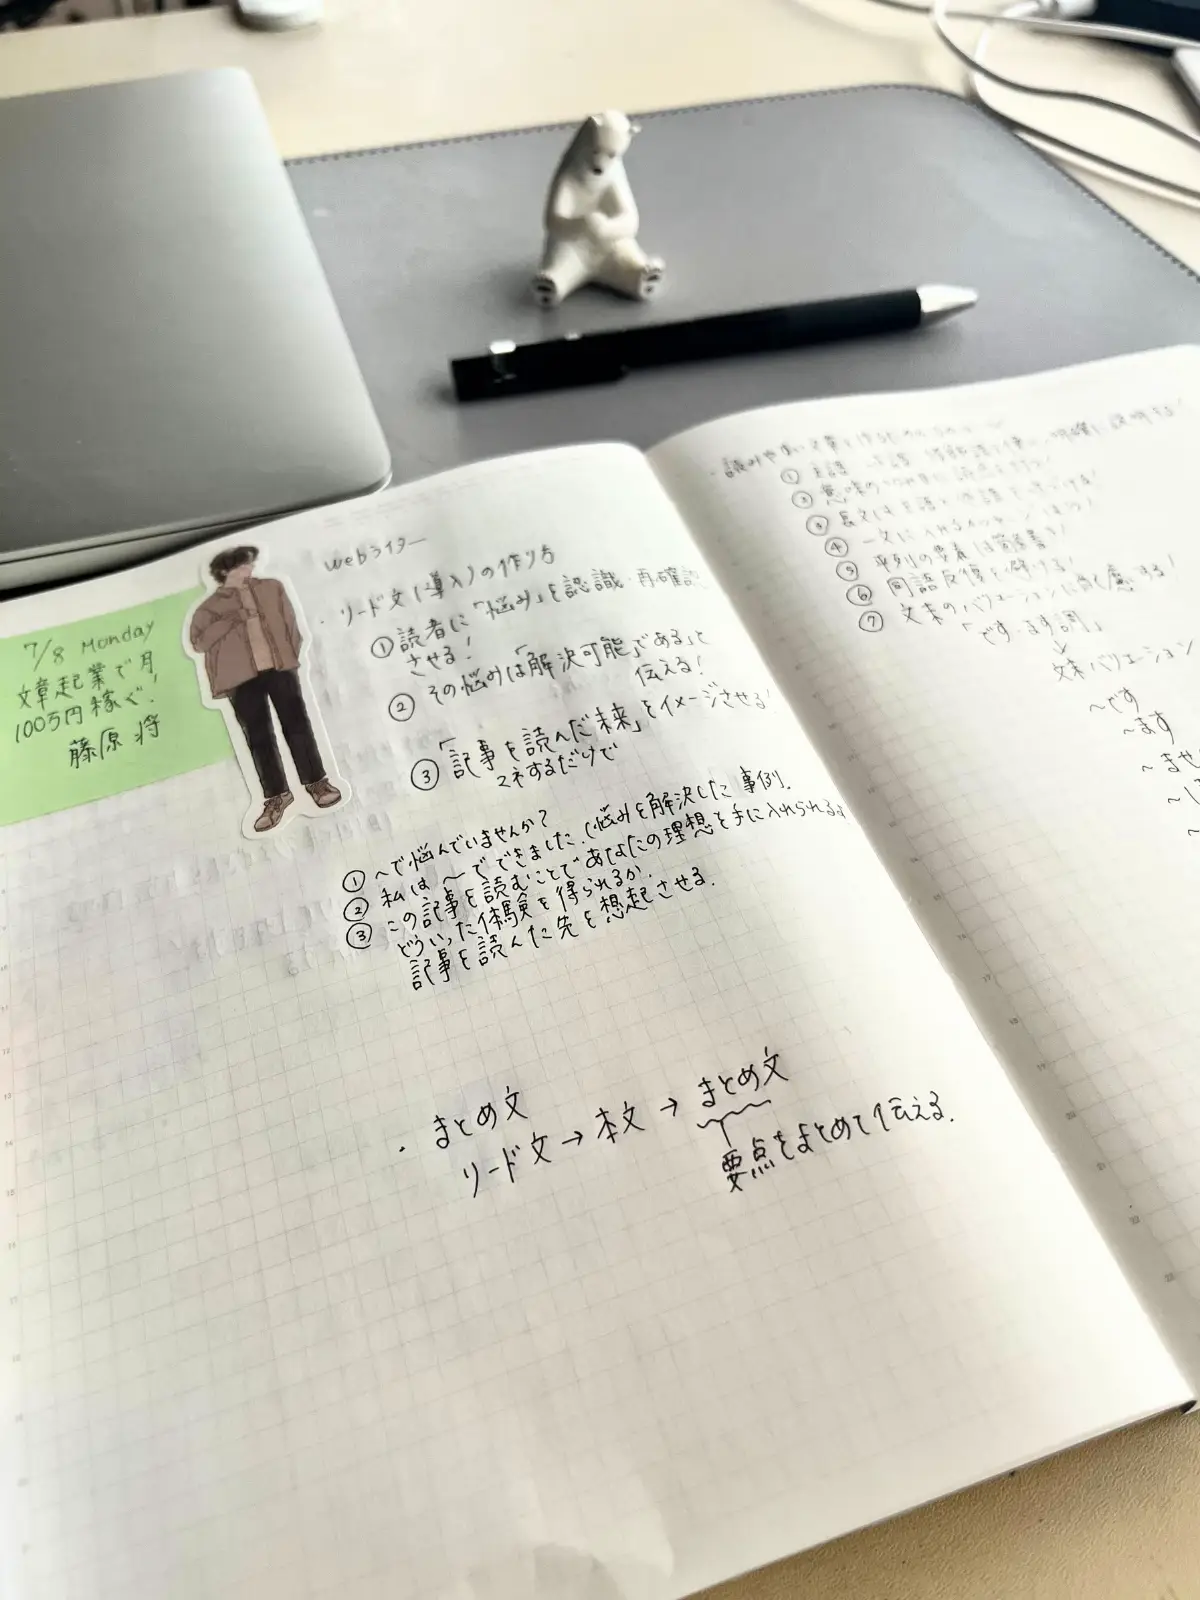 7/8 Monday
文章起業で月
100万円稼ぐ!
藤原 将
webライター
・リード文(導入)の作り方
①読者に「悩み」を認識・再確認
させる!
②その悩みは「解決可能」であると
伝える!
③「記事を読んだ未来」をイメージさせる!
マネするだけで
①〜で悩んでいませんか?
②私は〜でできました.(悩みを解決した事例.
③この記事を読むことであなたの理想を手に入れられる
どういった体験を得られるか.
記事を読んだ先を想起させる.
・まとめ文
リード文→本文→まとめ文
要点をまとめて伝える.
・読みやすい文章を作るための
①主語
②意味の
③長文は主語と述語を
④一文に入れるメッセージは1つ!
⑤並列の要素は箇条書き!
⑥同語反復を避ける!
⑦文末のバリエーションに
「です・ます調」
文末バリエーション
〜です
〜ます
〜ませ
〜
〜